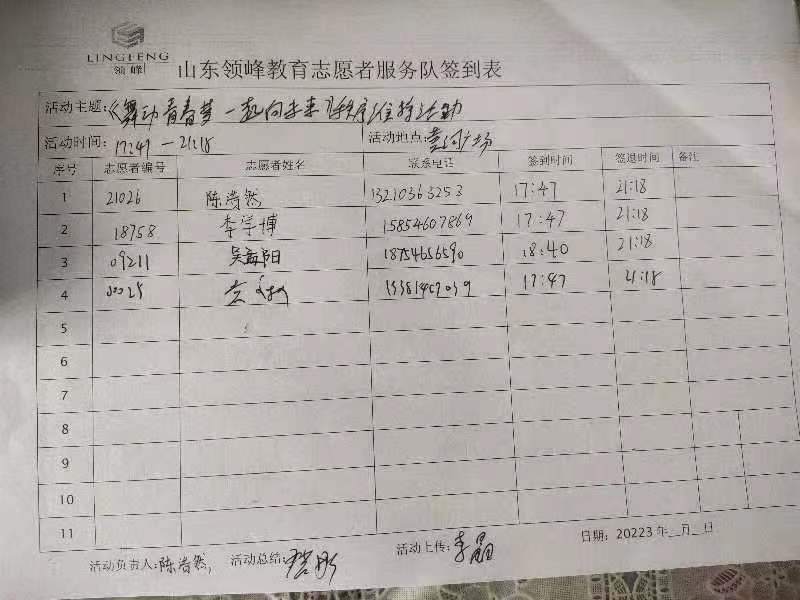 LINGFENG
领峰
山东领峰教育志愿者服务队签到表
活动主题:《舞动青春梦 一起向未来》秩序维持活动
活动时间: 17:47 — 21:18 活动地点: 黄河广场
序号 志愿者编号 志愿者姓名 联系电话 签到时间 签退时间 备注
1 21026 陈浩然 13210365253 17:47 21:18
2 18758 李学博 15854607869 17:47 21:18
3 09211 吴 阳 18754656590 18:40 21:18
4 00025 17:47 21:18
5
6
7
8
9
10
11
日期: 20223年__月__日
活动负责人: 陈浩然, 活动总结: 活动上传: 李晶